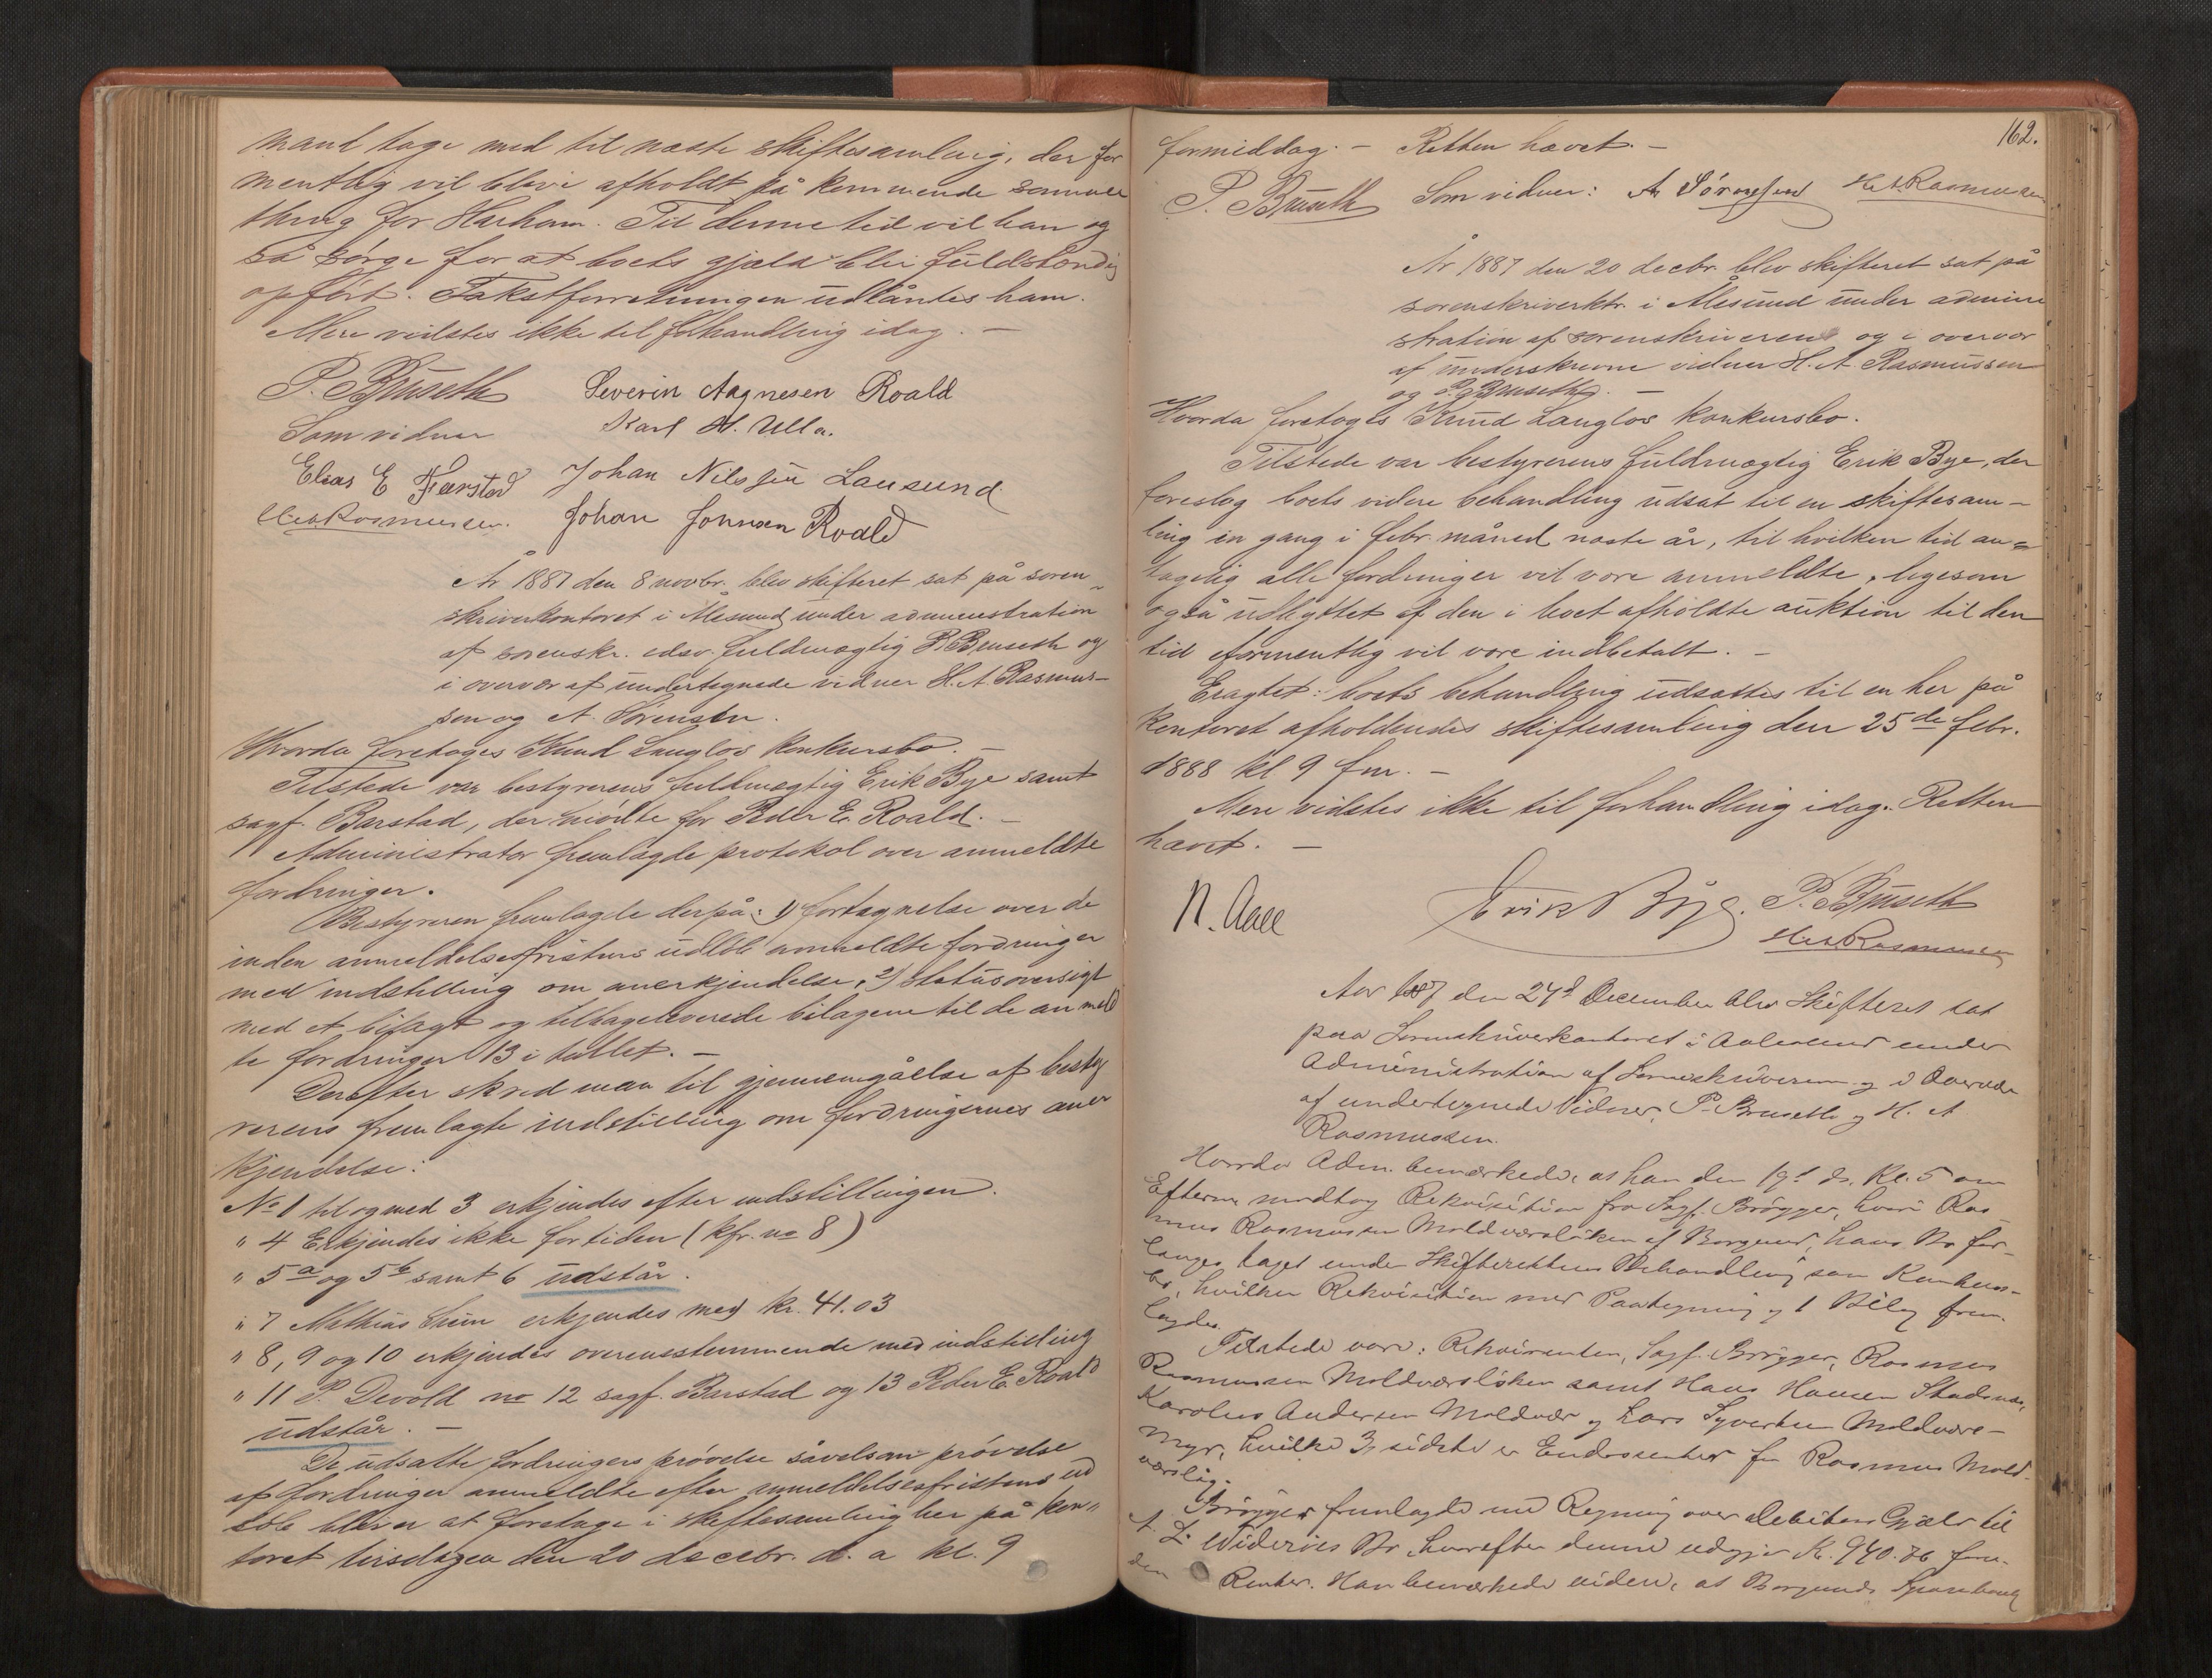 mand tage med til næste skiftesamling, der for
mentlig vil blive afholdt på kommende sommer
thing for Harham. Til denne tid vil han og
så sørge for at boets gjæld blir fuldstændig
opført. Takstforretningen udlåntes ham.
Mere vidstes ikke til forhandling idag. —
P. Bruseth Severin Aagnesen Roald
Som vidner Karl H. Ulla.
Elias E Fjærstad Johan Nilssen Lausund
H.A. Rasmussen. Johan Johnsen Roald
År 1887 den 8 novbr. blev skifteret sat på soren-
skriverkontoret i Ålesund under administration
af sorenskr. edsv. fuldmægtig P. Bruseth og
i overvær af undertegnede vidner H. A. Rasmus-
sen og A. Sørensen.
Hvorda foretoges Knud Langlos konkursbo. —
Tilstede var bestyrerens fuldmægtig Erik Bye samt
sagf. Barstad, der mødte for Peder E. Roald. —
Administrator fremlagde protokol over anmeldte
fordringer.
Bestyreren fremlagde derpå: 1) fortegnelse over de
inden anmeldelsesfristens udløb anmeldte fordringer
med indstilling om anerkjendelse, 2) statusoversigt
med et bifagt og tilbageleverede bilagene til de anmeld
te fordringer 13 i tallet. —
Derefter skred man til gjennemgåelse af besty
rerens fremlagte indstilling om fordringernes aner
kjendelse:
No 1 til og med 3 erkjendes efter indstillingen.
" 4 Erkjendes ikke for tiden (kfr. no 8)
" 5a og 5b samt 6 udstår.
" 7 Mathias erkjendes med kr. 41.03
" 8, 9 og 10 erkjendes overensstemmende med indstilling
" 11 P. Devold no 12 sagf. Barstad og 13 Peder E. Roald
udstår. —
De udsatte fordringers prøvelse såvelsom prøvelse
af fordringer anmeldte efter anmeldelsesfristens ud
løb bliver at foretage i skiftesamling her på kon-
toret tirsdagen den 20 decebr. d. a kl. 9
162.
formiddag. — Retten hævet. —
P. Bruseth Som vidner: A. Sørensen H.A. Rasmussen
År 1887 den 20 decbr. blev skifteret sat på
sorenskriverktr. i Ålesund under admini
stration af sorenskriveren og i overvær
af underskrevne vidner H. A. Rasmussen
og P. Bruseth. —
Hvorda foretoges Knud Langlos konkursbo.
Tilstede var bestyrerens fuldmægtig Erik Bye, der
foreslog boets videre behandling udsat til en skiftesam-
ling en gang i febr. måned næste år, til hvilken tid an-
tagelig alle fordringer vil være anmeldte, ligesom
også udbyttet af den i boet afholdte auktion til den
tid formentlig vil være indbetalt. —
Eragtet: boets behandling udsættes til en her på
kontoret afholdendes skiftesamling den 25de febr.
1888 kl 9 fm. —
Mere vidstes ikke til forhandling idag. Retten
hævet. —
N. Aall Erik Bye. P. Bruseth
H.A. Rasmussen
Aar 1887 den 24d December blev Skifteret sat
paa Sorenskriverkontoret i Aalesund under
Administration af Sorenskriveren og i Overvær
af undertegnede Vidner, P. Bruseth og H. A
Rasmussen.
Hvorda Adm. bemærkede, at han den 19d ds. Kl. 5 om
Efterm. modtog Rekvisition fra Sagf. Brøgger, hvori Ras-
mus Rasmussen Moldværsløken af Borgund, hans Bo for-
langes taget under Skifterettens Behandling som Konkurs-
bo, hvilken Rekvisition med Paategning og 1 Bilag frem-
lagdes.
Tilstede vare: Rekvirenten, Sagf. Brøgger, Rasmus
Rasmussen Moldværsløken samt Hans Hansen
Karolus Andersen Moldvær og Lars Syvertsen Moldværs-
myr, hvilke 3 sidste er Endossenter for Rasmus Mold-
værslig.
Brøgger fremlagde en Regning over Debitors Gjæld til
A. L. Widerøes Bo, hvorefter denne udgjør Kr. 940.76 foru-
den Renter. Han bemærkede videre, at Borgunds Sparebank